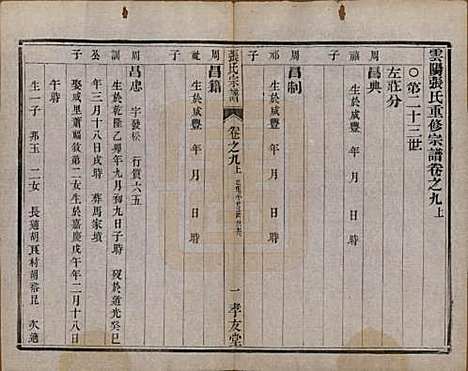 雲陽張氏重修宗譜卷之九上
○第二十三世
左莊分
周 昌典
福 生於咸豐 年 月 日 時
子
周 昌制
祁 生於咸豐 年 月 日 時
子
張氏宗譜 卷之九上
一 孝友堂
周 昌籍
祉 生於咸豐 年 月 日 時
子
周 昌忠 字發松 行價六五
訓 生於乾隆乙未年九月初九日子時 歿於道光癸巳
公 年三月十八日戌時 葬馬家墳
娶咸里蕭福敘第二女生於嘉慶戊午年二月十八日
子 午時
生一子 邦玉 二女 長適胡 村胡裕昆 次適